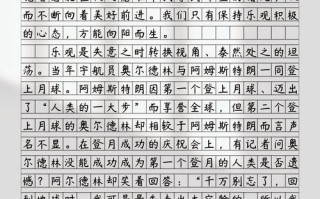 而不断向着美好前进。我们只有保持乐观积极
的心态，方能向阳而生。
乐观是失意之时转换视角、泰然处之的坦
荡。当年宇航员奥尔德林与阿姆斯特朗一同登
上月球。阿姆斯特朗因第一个登上月球、迈出
了“人类的一大步”而享誉全球，但第二个登
上月球的奥尔德林却相较于阿姆斯特朗而言声
名不显。在登月成功的庆祝会上，有记者问奥
尔德林没能成功成为第一个登月的人类是否遗
憾？阿尔德林却笑着回答：“千万别忘了，回